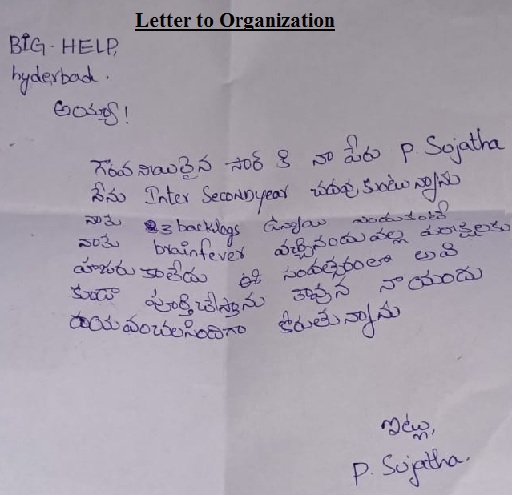 Letter to Organization
BIG-HELP,
hyderbad.
అయ్యా!
గౌరవనీయులైన సార్ కి నా పేరు P. Sujatha
నేను Inter Second year చదువుకుంటున్నాను
నాకు 3 backlogs ఉన్నాయి ఎందుకంటే
నాకు brainfever వచ్చినందువల్ల పరీక్షలకు
హాజరు కాలేదు ఈ సంవత్సరంలో అవి
కూడా పూర్తి చేస్తాను కావున నా యందు
దయ వుంచవలసిందిగా కోరుతున్నాను
ఇట్లు,
P. Sujatha.